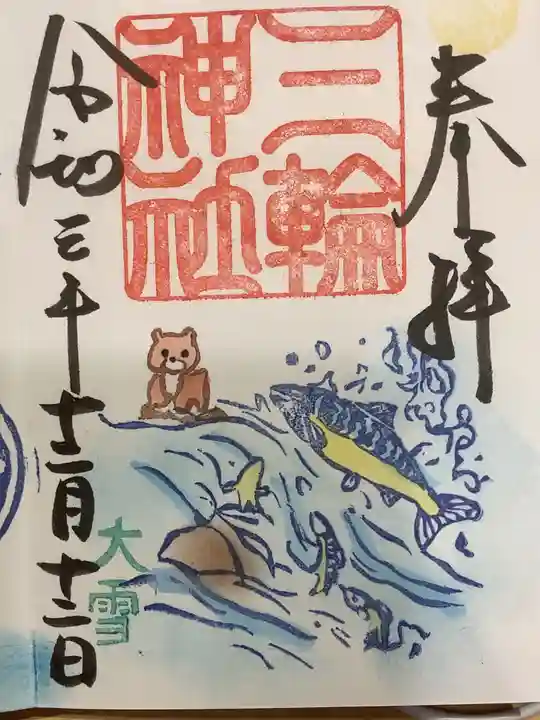 奉拝
三輪
神社
令和三年十二月十二日
大雪